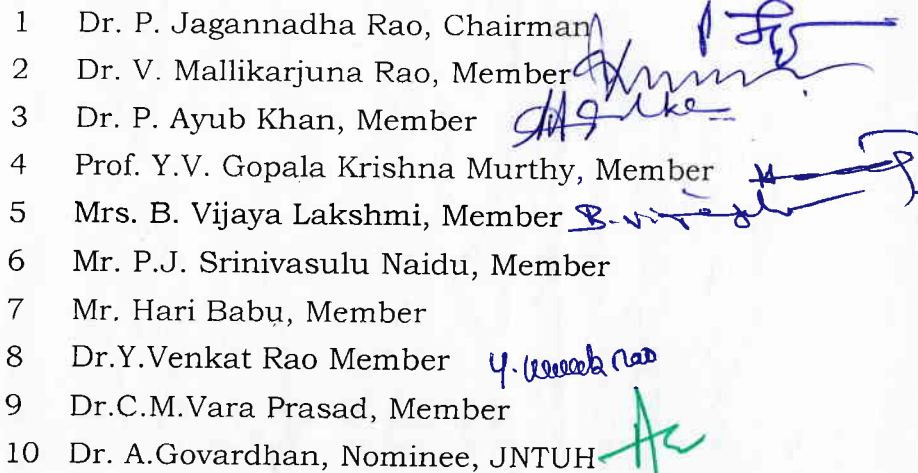 1 Dr. P. Jagannadha Rao, Chairman
2 Dr. V. Mallikarjuna Rao, Member
3 Dr. P. Ayub Khan, Member
4 Prof. Y.V. Gopala Krishna Murthy, Member
5 Mrs. B. Vijaya Lakshmi, Member
6 Mr. P.J. Srinivasulu Naidu, Member
7 Mr. Hari Babu, Member
8 Dr.Y.Venkat Rao Member
9 Dr.C.M.Vara Prasad, Member
10 Dr. A.Govardhan, Nominee, JNTUH